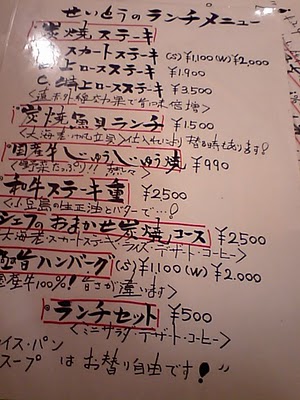 せいとうのランチメニュー
炭焼ステーキ
スカートステーキ (S)¥1,100 (W)¥2,000
上ロースステーキ ¥1,900
上ロースステーキ ¥3,500
<遠赤外線効果で旨味倍増>
炭焼魚貝ランチ ¥1,500
仕入れにより替る時もあります
国産牛じゅうじゅう焼 ¥990
<野菜たっぷり!!
和牛ステーキ重 ¥2500
<小豆島の生正油とバターで…
シェフのおまかせ炭焼コース ¥2500
大海老・スカートステーキ・ライス・デザート・コーヒー>
極旨ハンバーグ (S)¥1,100 (W)¥2.000
国産牛100%! 旨さが違います>
ランチセット ¥500
<ミニサラダ・デザート・コーヒー>
ライス・パン
スープ はお替り自由です!